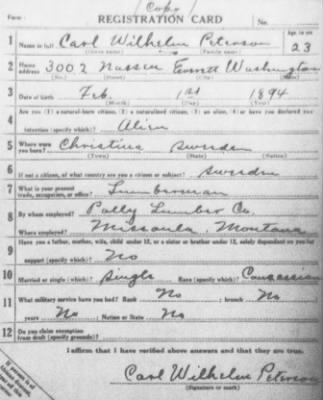 (Copy)
Form
REGISTRATION CARD
No.
1 Name in full Carl Wilhelm Peterson Age, in yrs 23
(Given name) (Family name)
2 Home address 3002 Nassau Everett Washington
(No.) (Street) (City) (State)
3 Date of birth Feb. 1st 1894
(Month) (Day) (Year)
4 Are you (1) a natural-born citizen, (2) a naturalized citizen, (3) an alien, (4) or have you declared your intention (specify which)? Alien
5 Where were you born? Christina Sweeden
(Town) (State) (Nation)
6 If not a citizen, of what country are you a citizen or subject? Sweeden
7 What is your present trade, occupation, or office? Lumberman
8 By whom employed? Polly Lumber Co.
Where employed? Missoula, Montana
9 Have you a father, mother, wife, child under 12, or a sister or brother under 12, solely dependent on you for support (specify which)? No
10 Married or single (which)? Single Race (specify which)? Caucassian
11 What military service have you had? Rank No ; branch No
years No ; Nation or State No
12 Do you claim exemption from draft (specify grounds)?
I affirm that I have verified above answers and that they are true.
Carl Wilhelm Peterson
(Signature or mark)
If person is of